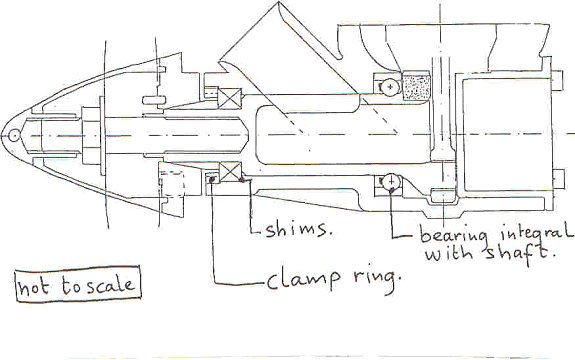 shims.
bearing integral
with shaft.
clamp ring.
not to scale